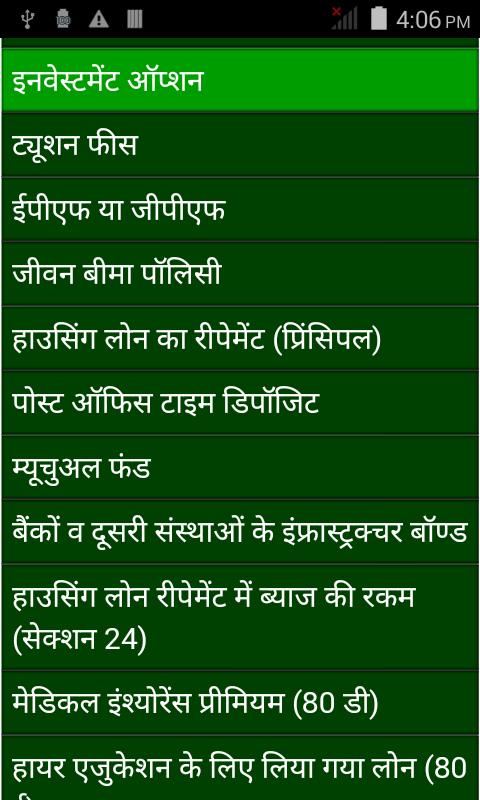 4:06 PM
इनवेस्टमेंट ऑप्शन
ट्यूशन फीस
ईपीएफ या जीपीएफ
जीवन बीमा पॉलिसी
हाउसिंग लोन का रीपेमेंट (प्रिंसिपल)
पोस्ट ऑफिस टाइम डिपॉजिट
म्यूचुअल फंड
बैंकों व दूसरी संस्थाओं के इंफ्रास्ट्रक्चर बॉण्ड
हाउसिंग लोन रीपेमेंट में ब्याज की रकम
(सेक्शन 24)
मेडिकल इंश्योरेंस प्रीमियम (80 डी)
हायर एजुकेशन के लिए लिया गया लोन (80